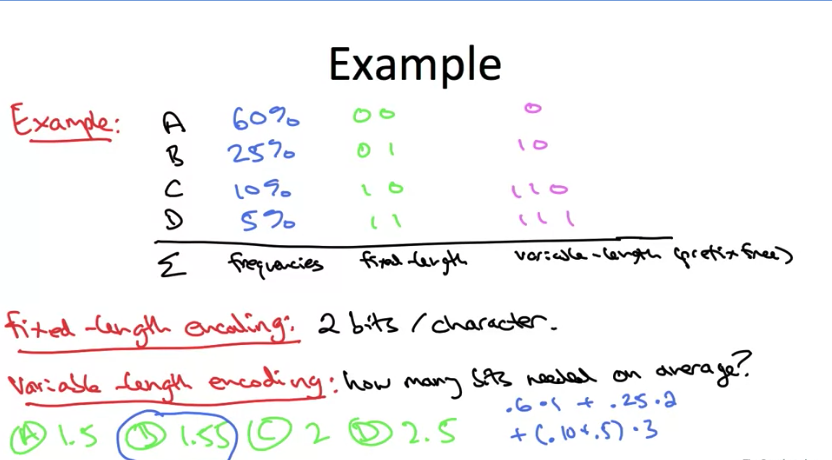 Example
Example: A 60% 00 0
B 25% 01 10
C 10% 110 110
D 5% 11 111
Σ frequencies fixed-length variable-length (prefix free)
fixed-length encoding: 2 bits / character.
Variable-length encoding: how many bits needed on average?
.6·1 + .25·2
+ (.10+.5)·3
(A) 1.5 (B) 1.55 (C) 2 (D) 2.5